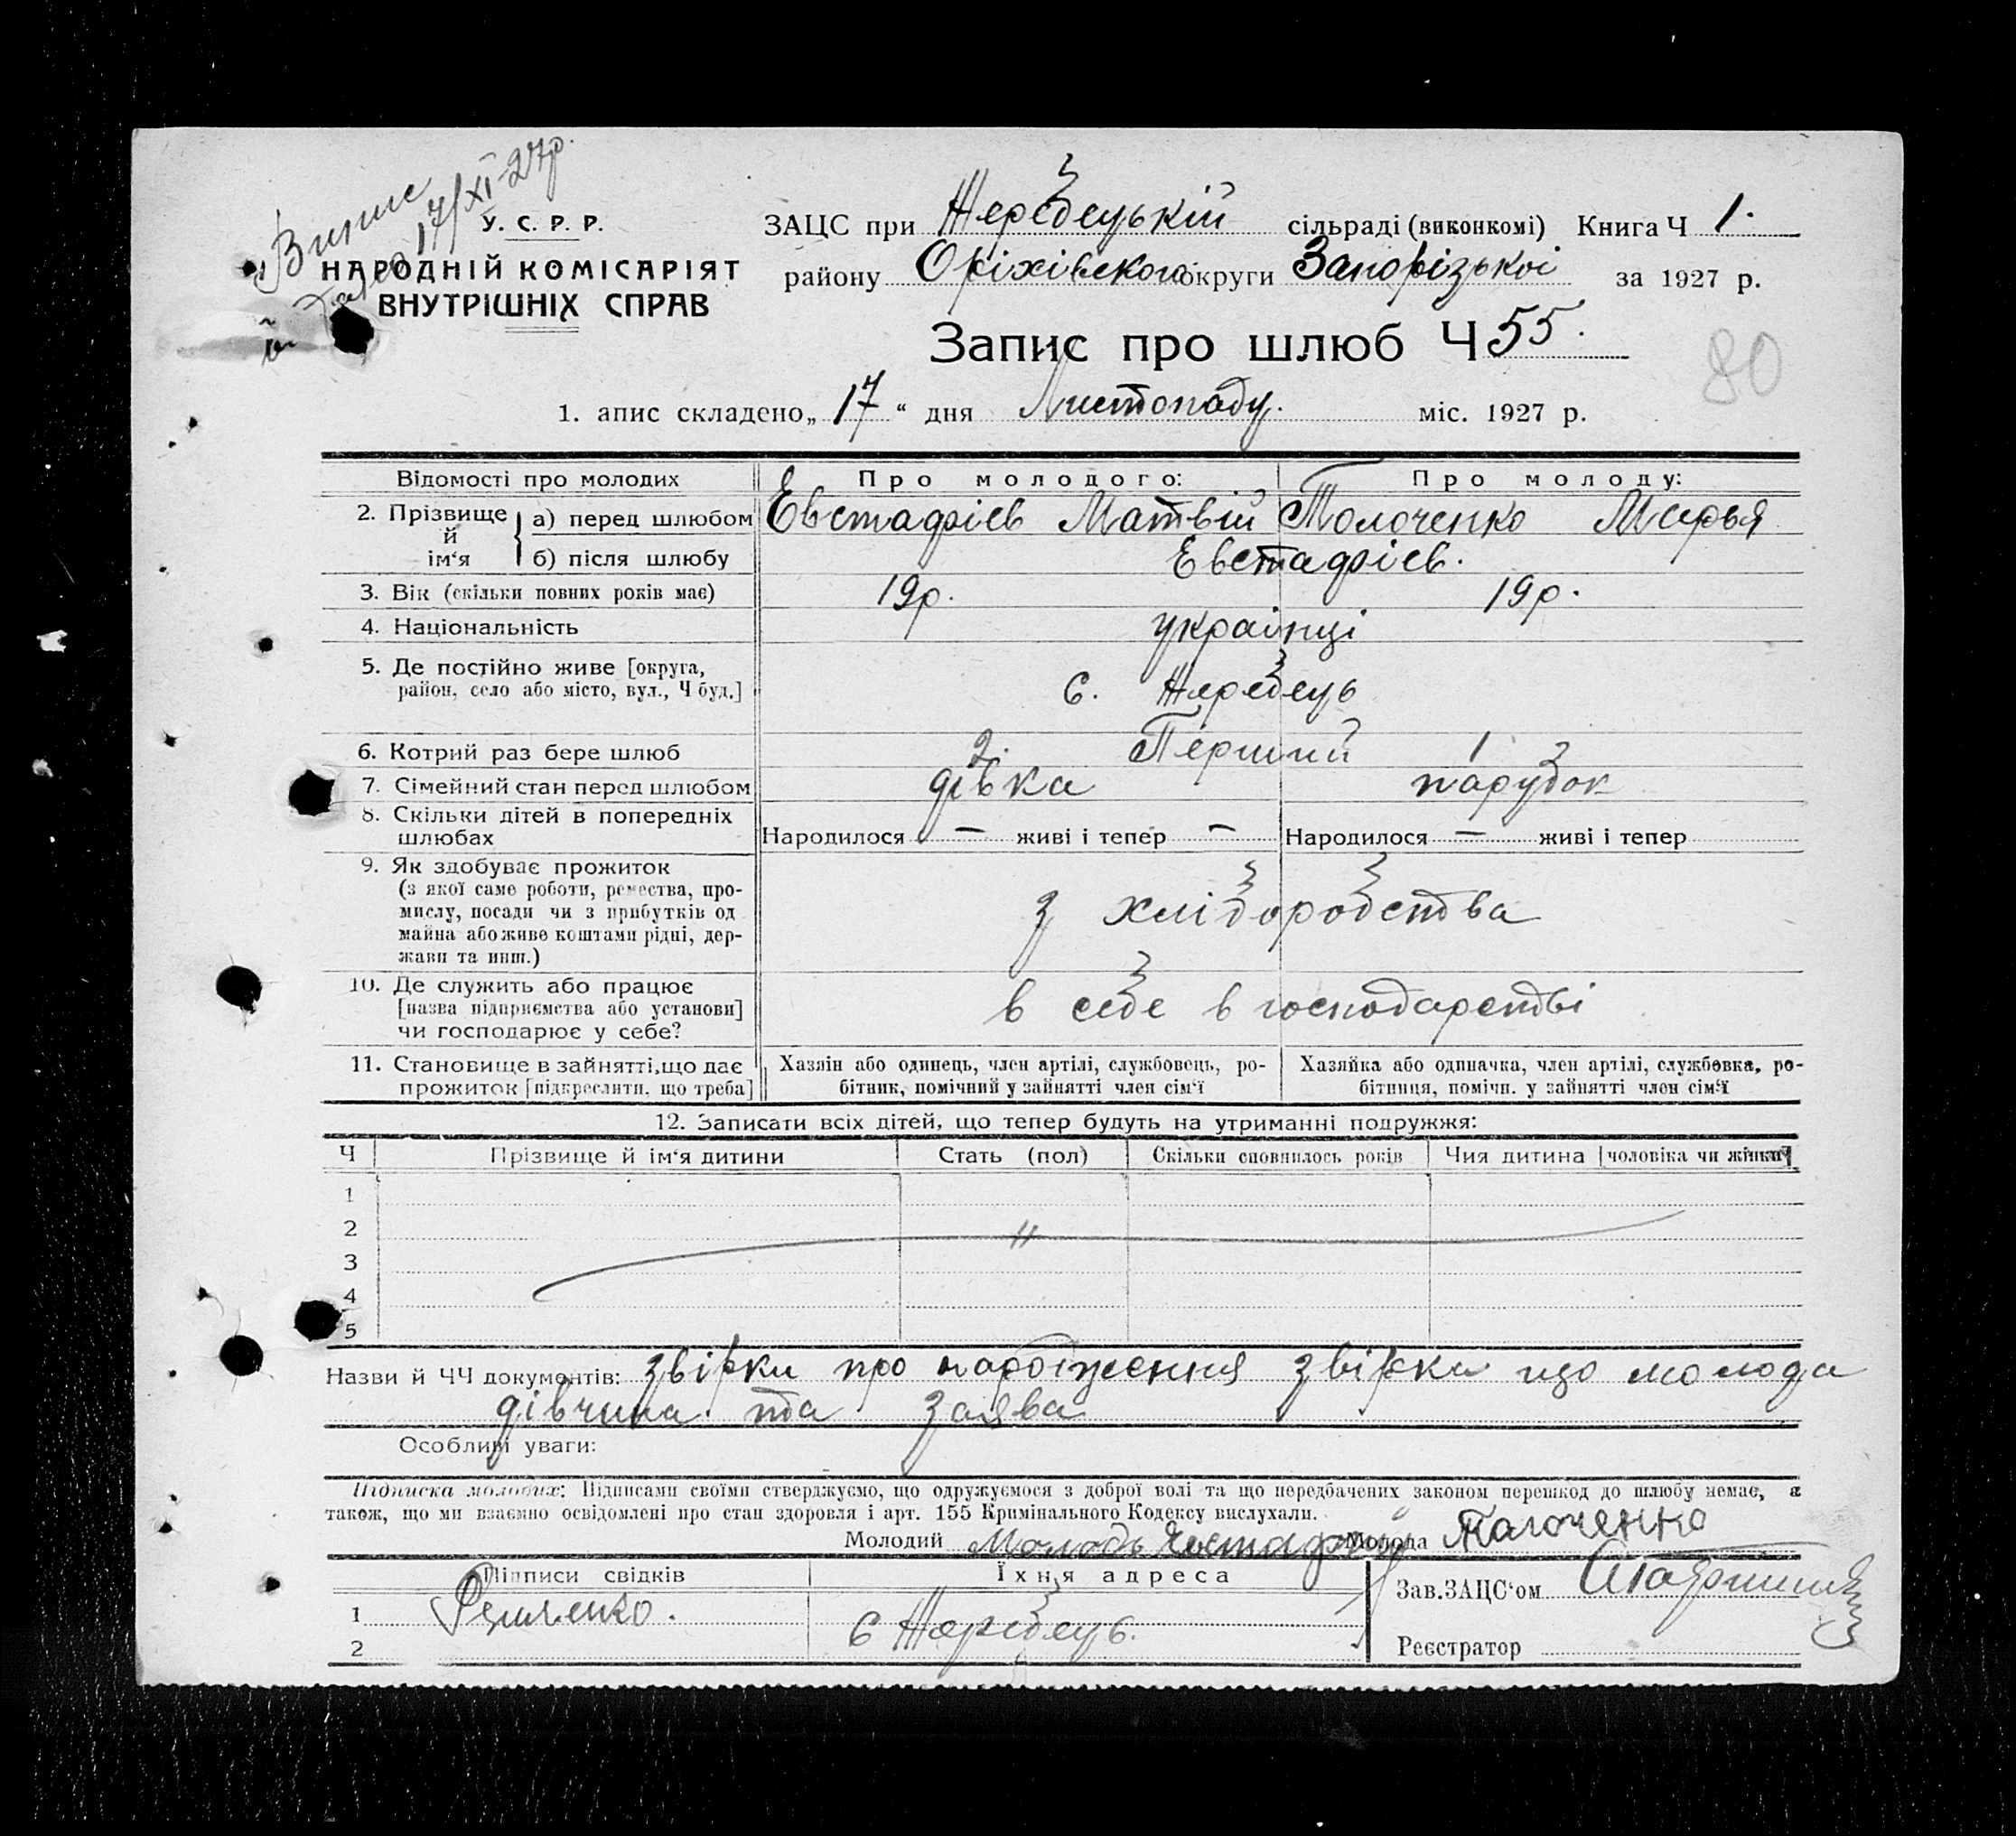 Випис
17/XI-27р.
У. С. Р. Р.
НАРОДНІЙ КОМІСАРІЯТ
ВНУТРІШНІХ СПРАВ
ЗАЦС при Жеребецькій сільраді (виконкомі) Книга Ч 1.
району Оріхівського округи Запорізької за 1927 р.
Запис про шлюб Ч 55.
80
1. апис складено „17“ дня Листопаду. міс. 1927 р.
Відомості про молодих Про молодого: Про молоду:
2. Прізвище й ім‘я а) перед шлюбом Евстафіев Матвій Толоченко Марья
б) після шлюбу Евстафіев.
3. Вік (скільки повних років має) 19р. 19р.
4. Національність українці
5. Де постійно живе [округа,
район, село або місто, вул., Ч буд.] с. Жеребець
6. Котрий раз бере шлюб 2. Перший 1
7. Сімейний стан перед шлюбом дівка парубок
8. Скільки дітей в попередніх
шлюбах Народилося — живі і тепер — Народилося — живі і тепер
9. Як здобуває прожиток
(з якої саме роботи, ремества, про-
мислу, посади чи з прибутків од
майна або живе коштами рідні, дер-
жави та инш.)
з хліборобства
10. Де служить або працює
[назва підприємства або установи]
чи господарює у себе?
в себе в господарстві
11. Становище в зайнятті, що дає
прожиток [підкреслити, що треба]
Хазяін або одинець, член артілі, службовець, ро-
бітник, помічний у зайнятті член сім‘ї
Хазяйка або одиначка, член артілі, службовка, ро-
бітниця, помічн. у зайнятті член сім‘ї
12. Записати всіх дітей, що тепер будуть на утриманні подружжя:
Ч Прізвище й ім‘я дитини Стать (пол) Скільки сповнилось років Чия дитина [чоловіка чи жінки]
1
2
3
4
5
Назви й ЧЧ документів: звірки про народження звірка що молода
дівчина та заява
Особливі уваги:
Підписка молодих: Підписами своїми стверджуємо, що одружуємося з доброї волі та що передбачених законом перешкод до шлюбу немає, а
також, що ми взаємно освідомлені про стан здоровля і арт. 155 Кримінального Кодексу вислухали.
Молодий Молода Толоченко
Підписи свідків Їхня адреса Зав. ЗАЦС‘ом
1 с Жеребець.
2 Реєстратор